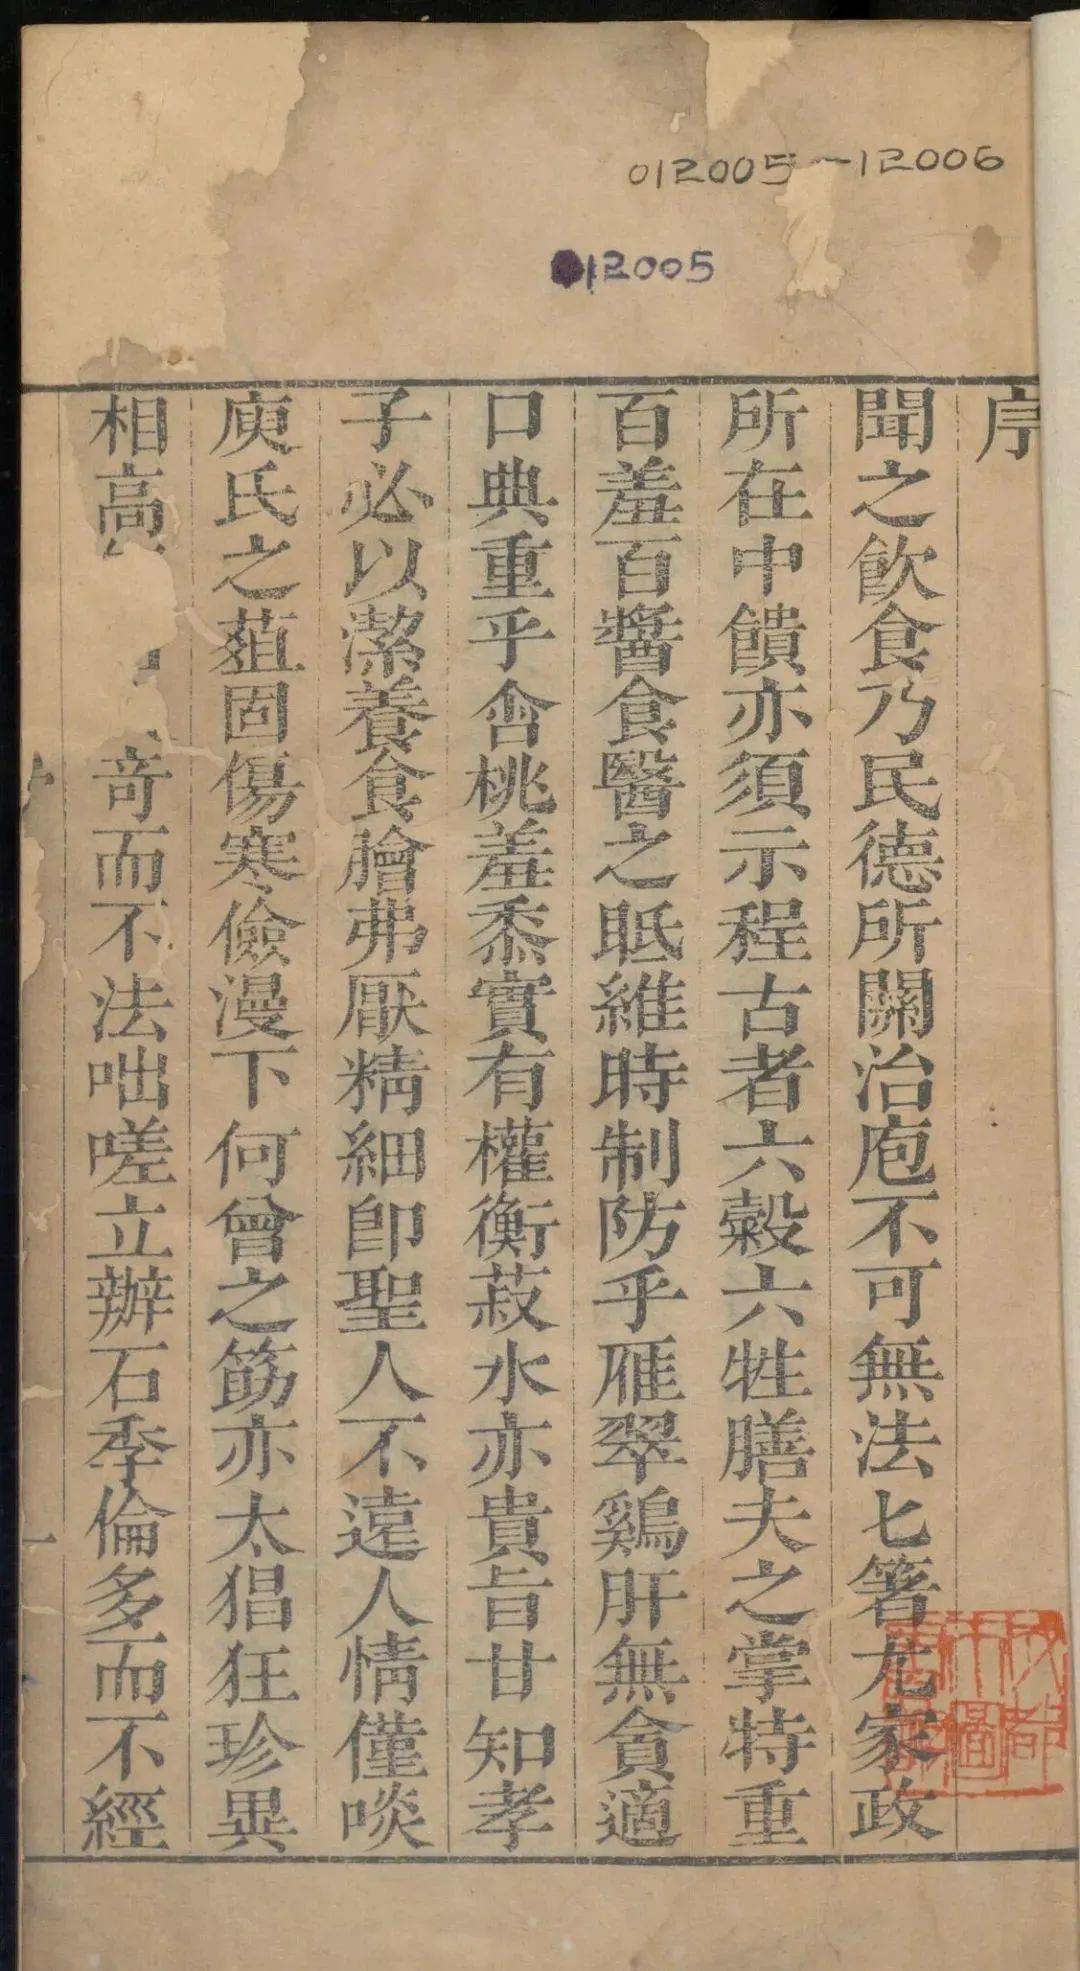 012005~12006
012005
序
聞之飲食乃民德所關治庖不可無法匕箸尤家政
所在中饋亦須示程古者六穀六牲膳夫之掌特重
百羞百醬食醫之眂維時制防乎雁翠鷄肝無貪適
口典重乎含桃羞黍實有權衡菽水亦貴旨甘知孝
子必以潔養食膾弗厭精細即聖人不遠人情僅啖
庾氏之菹固傷寒儉漫下何曾之筯亦太猖狂珍異
相高奇而不法咄嗟立辦石季倫多而不經
一
成都市圖